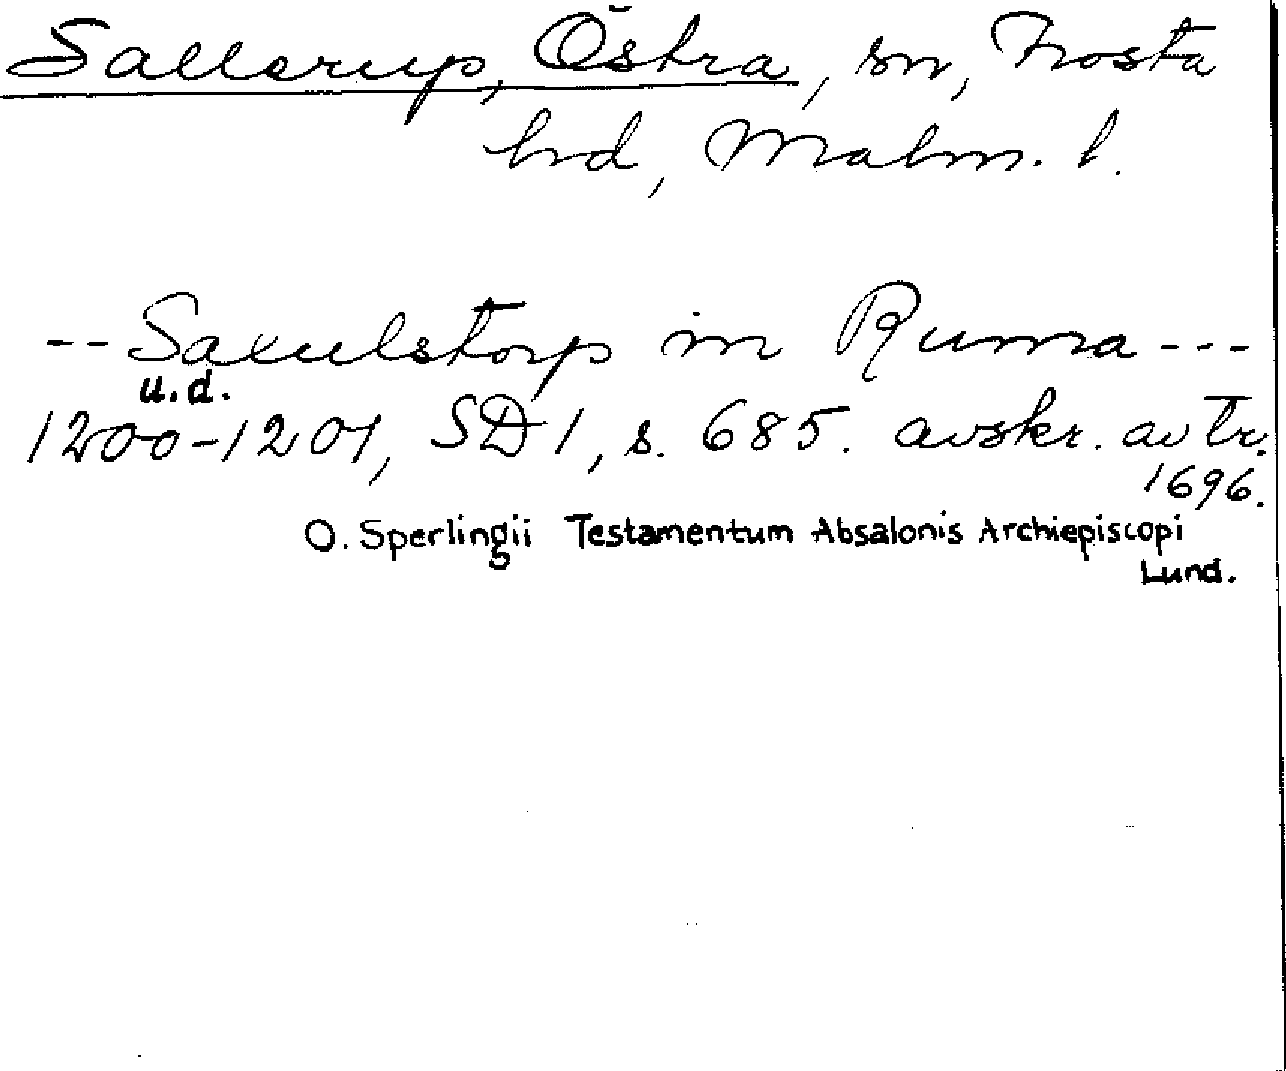 Sallerup, Östra, sn, Frosta
hd, Malm. l.
-- Saxulstorp in Runna ---
u.d.
1200-1201, SD 1, s. 685. avskr. av tr.
1696.
O. Sperlingii Testamentum Absalonis Archiepiscopi
Lund.